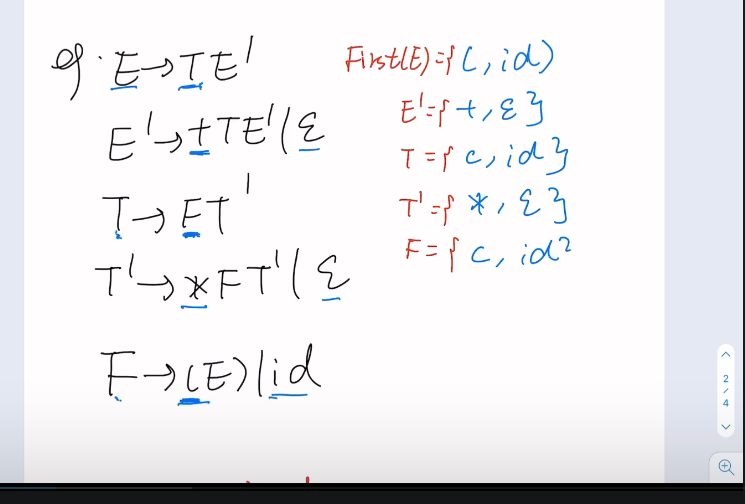 eg. E→TE'
E'→+TE'|ε
T→FT'
T'→*FT'|ε
F→(E)|id
First(E)={(,id)
E'={+,ε}
T={(,id}
T'={*,ε}
F={(,id}
2
/
4